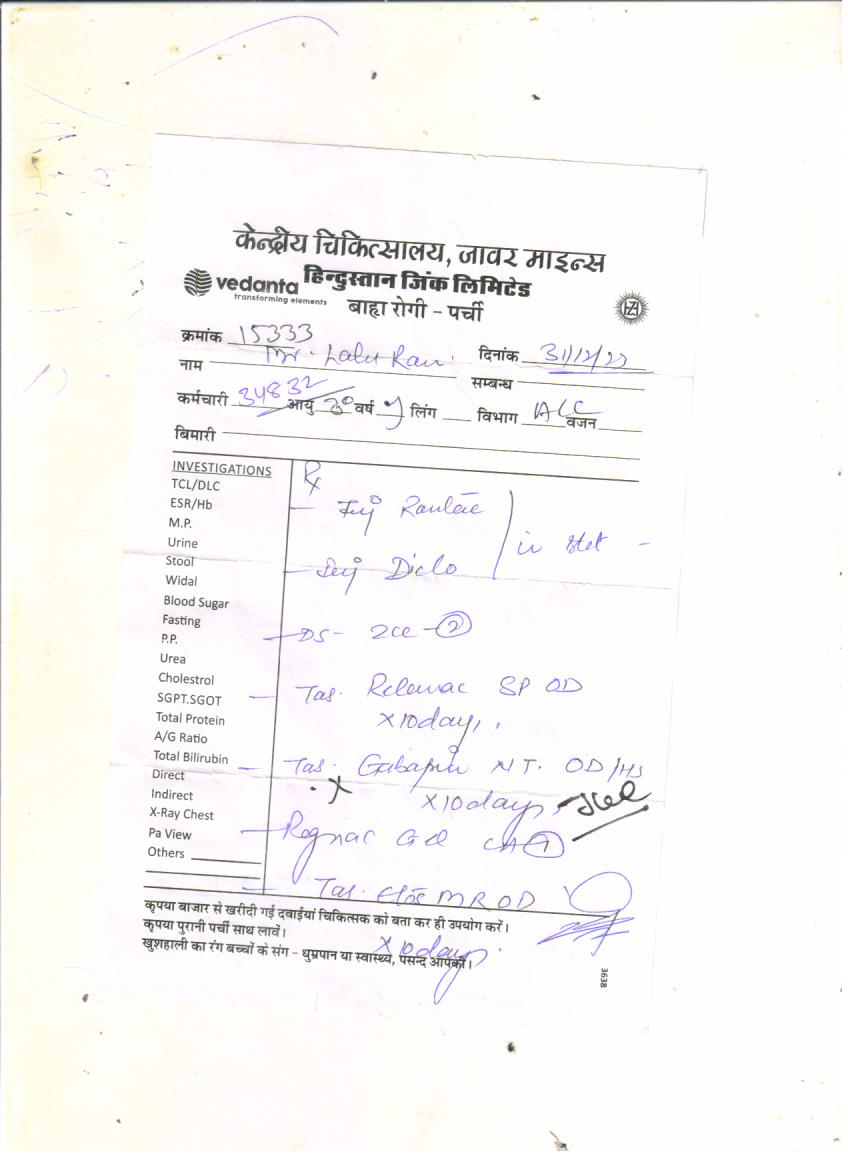 केन्द्रीय चिकित्सालय, जावर माइन्स
vedanta हिन्दुस्तान जिंक लिमिटेड
transforming elements
बाह्य रोगी - पर्ची
HZL
क्रमांक 15333 दिनांक 31/12/23
नाम Mr. Lalu Ram. सम्बन्ध
कर्मचारी 34832 आयु वर्ष लिंग विभाग वजन
बिमारी
INVESTIGATIONS
TCL/DLC
ESR/Hb
M.P.
Urine
Stool
Widal
Blood Sugar
Fasting
P.P.
Urea
Cholestrol
SGPT.SGOT
Total Protein
A/G Ratio
Total Bilirubin
Direct
Indirect
X-Ray Chest
Pa View
Others
Rx
- Inj
- Inj Diclo
- DS- 2cc - 2
- Tab. SP OD
X 10 days
- Tab. Gabapin NT. OD/HS
X 10 days
- Gel 1
- Tab. MR OD
X 10 days
कृपया बाजार से खरीदी गई दवाईयां चिकित्सक को बता कर ही उपयोग करें।
कृपया पुरानी पर्ची साथ लावें।
खुशहाली का रंग बच्चों के संग - धुम्रपान या स्वास्थ्य, पसन्द आपकी।
3638